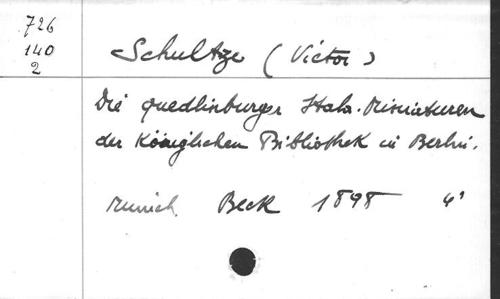 726
140
2
Schultze (Victor)
Die quedlinburger Itala-Miniaturen
der Königlichen Bibliothek in Berlin.
Munich Beck 1898 4°